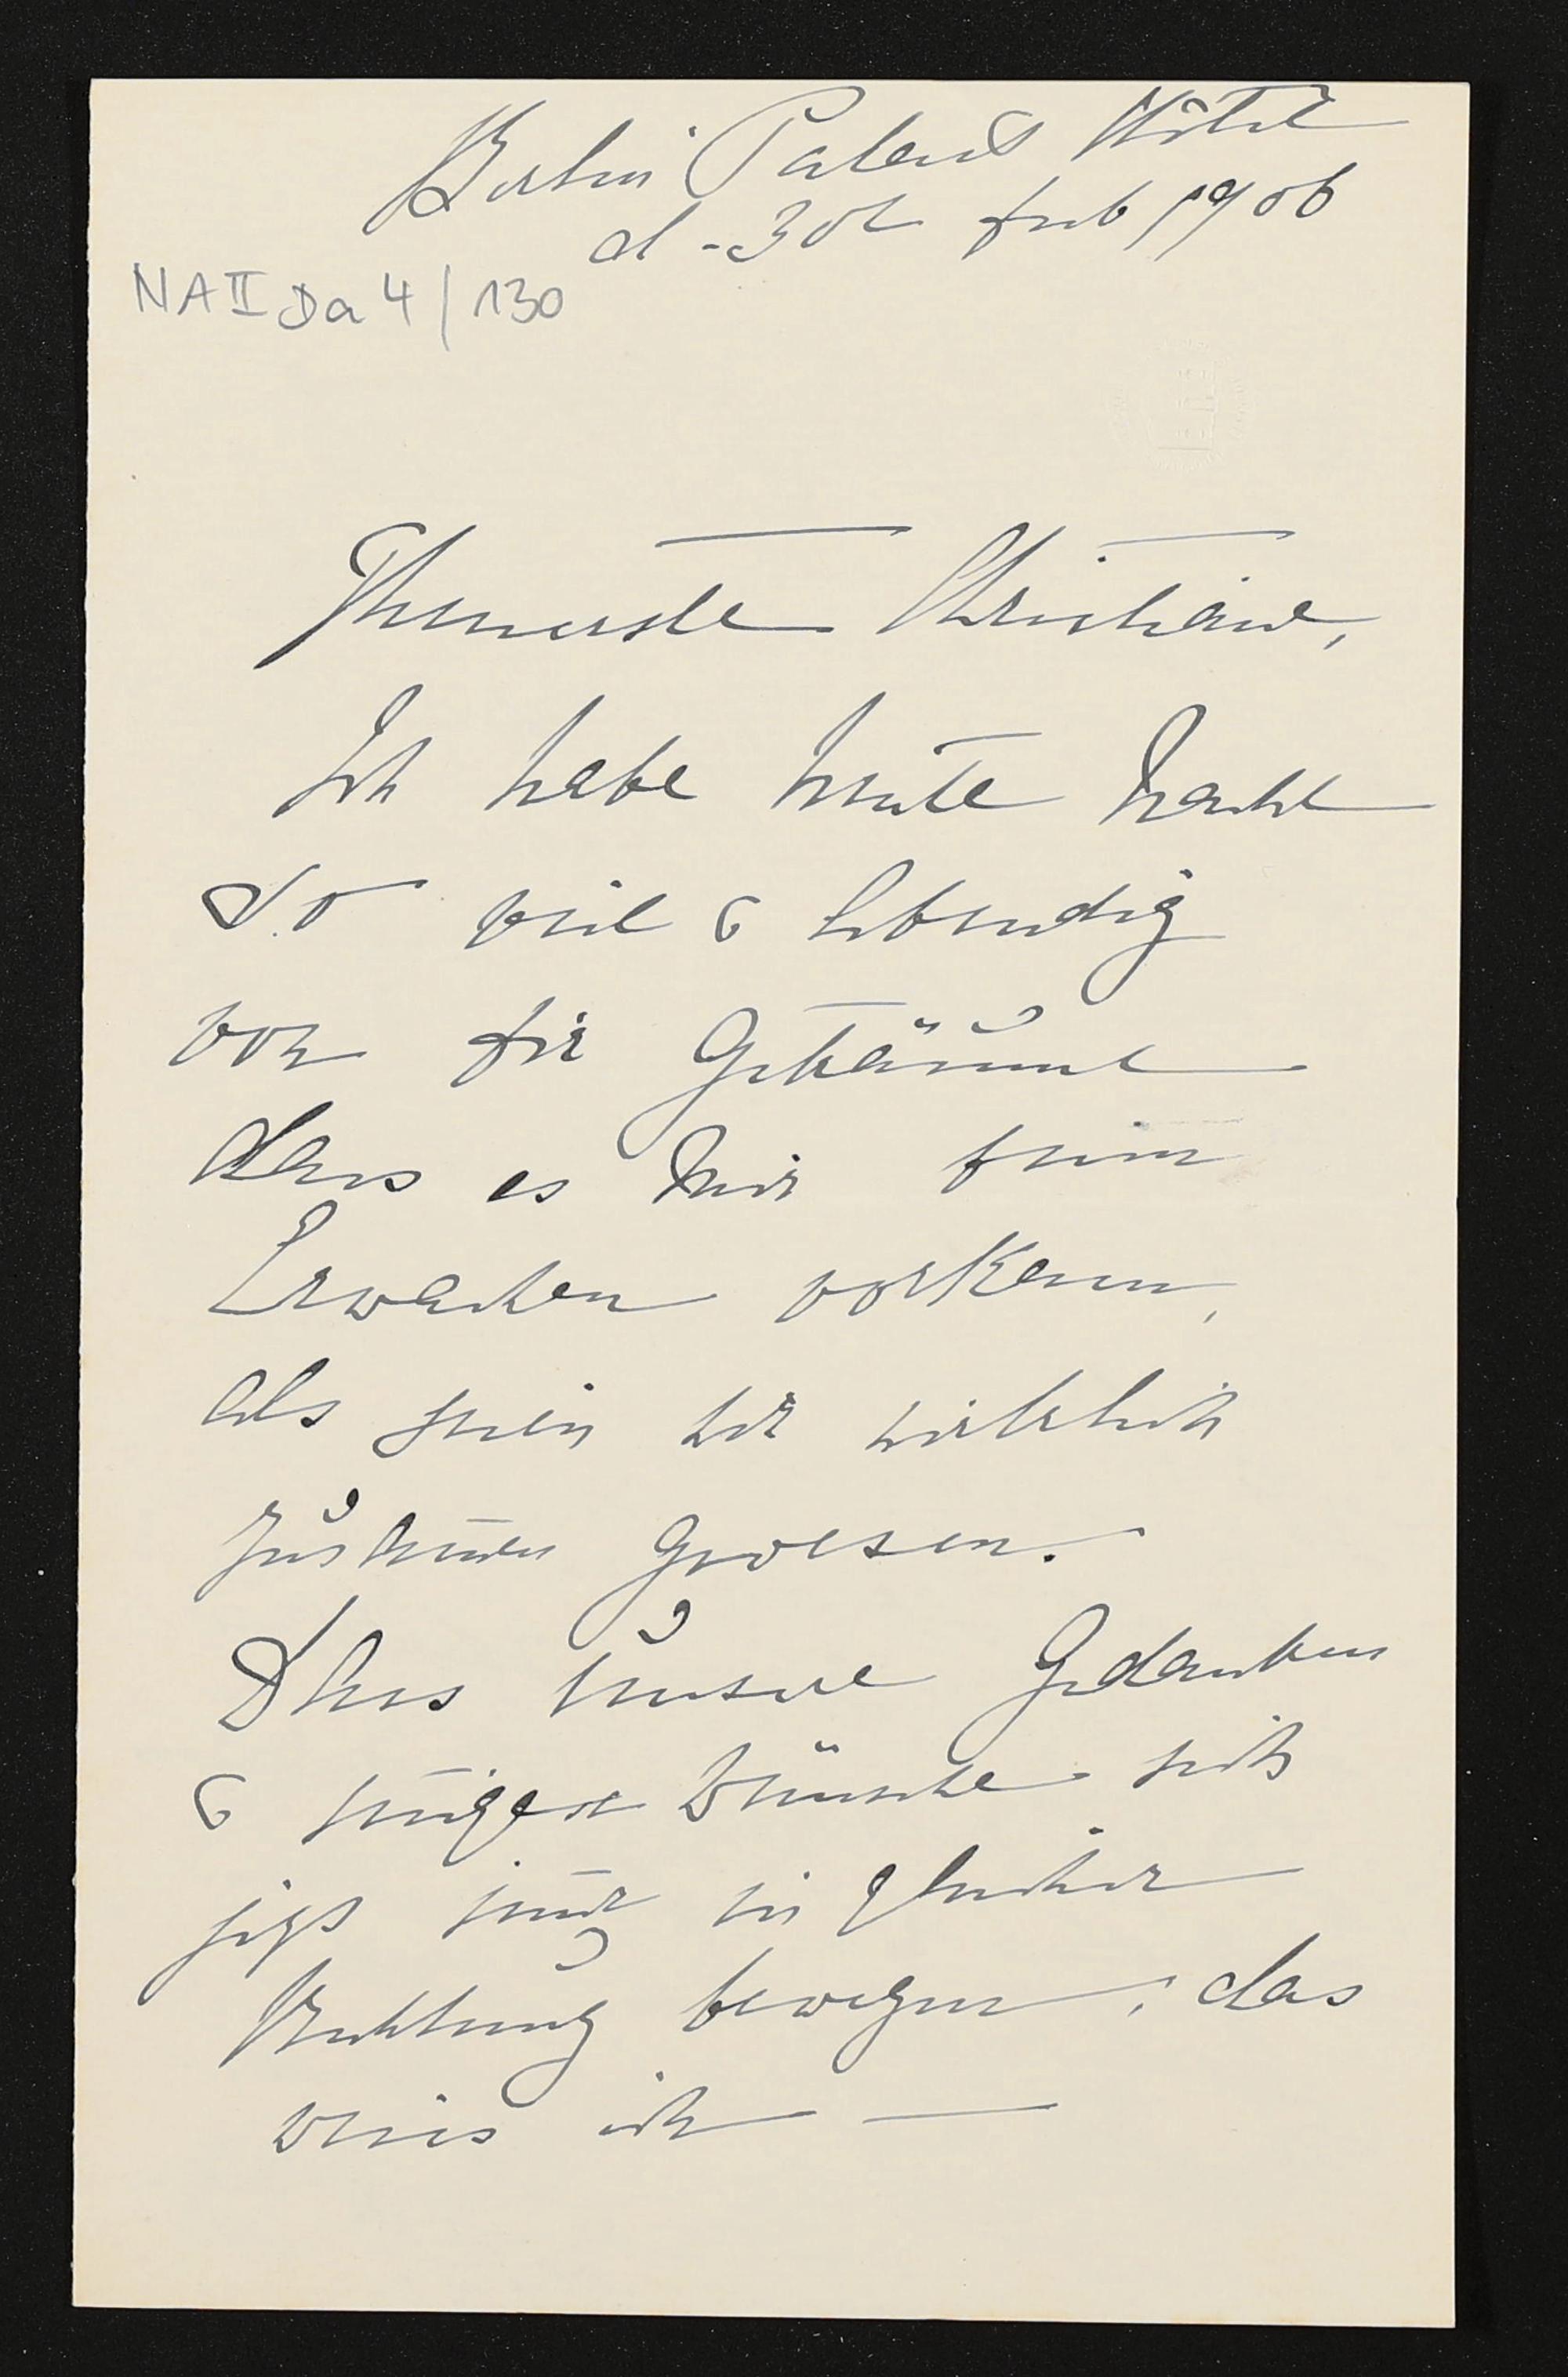 Berlin Palast Hôtel
d. 30t Feb 1906
NA II Da 4/130
Theuerste Christiane,
Ich habe heute Nacht
so viel & lebendig
von Dir geträumt
dass es mir beim
Erwachen vorkam,
als seien wir wirklich
zusammen gewesen.
Dass unsere Gedanken
& innigen Wünsche sich
jetzt immer in gleicher
Richtung bewegen, das
weiss ich —